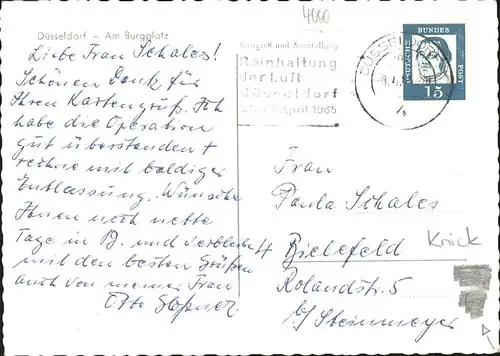 4000
Düsseldorf - Am Burgplatz
Liebe Frau Schales!
Schönen Dank für
Ihren Kartengruß. Ich
habe die Operation
gut überstanden +
rechne mit baldiger
Entlassung. Wünsche
Ihnen noch nette
Tage in B. und verbleibe
mit den besten Grüßen
auch von meiner Frau
Otto
Kongreß und Ausstellung
Reinhaltung
der Luft
Düsseldorf
April 1965
DEUTSCHE
BUNDES
POST
15
Frau
Paula Schales
Bielefeld
Knick
Rolandstr. 5
b/ Steinmeyer